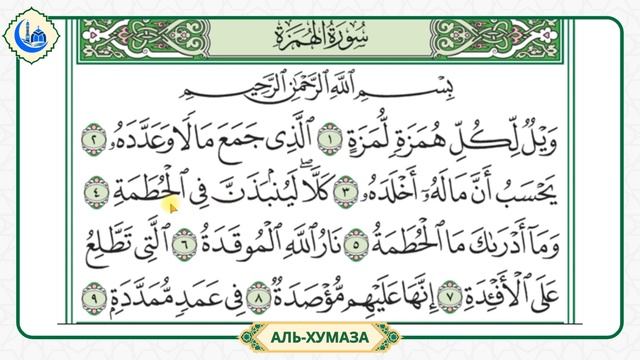 سُورَةُ الْهُمَزَةِ
بِسْمِ اللَّهِ الرَّحْمَٰنِ الرَّحِيمِ
وَيْلٌ لِّكُلِّ هُمَزَةٍ لُّمَزَةٍ ١ الَّذِي جَمَعَ مَالًا وَعَدَّدَهُ ٢
يَحْسَبُ أَنَّ مَالَهُ أَخْلَدَهُ ٣ كَلَّا ۖ لَيُنبَذَنَّ فِي الْحُطَمَةِ ٤
وَمَا أَدْرَىٰكَ مَا الْحُطَمَةُ ٥ نَارُ اللَّهِ الْمُوقَدَةُ ٦ الَّتِي تَطَّلِعُ
عَلَى الْأَفْـِٔدَةِ ٧ إِنَّهَا عَلَيْهِم مُّؤْصَدَةٌ ٨ فِي عَمَدٍ مُّمَدَّدَةٍ ٩
АЛЬ-ХУМАЗА